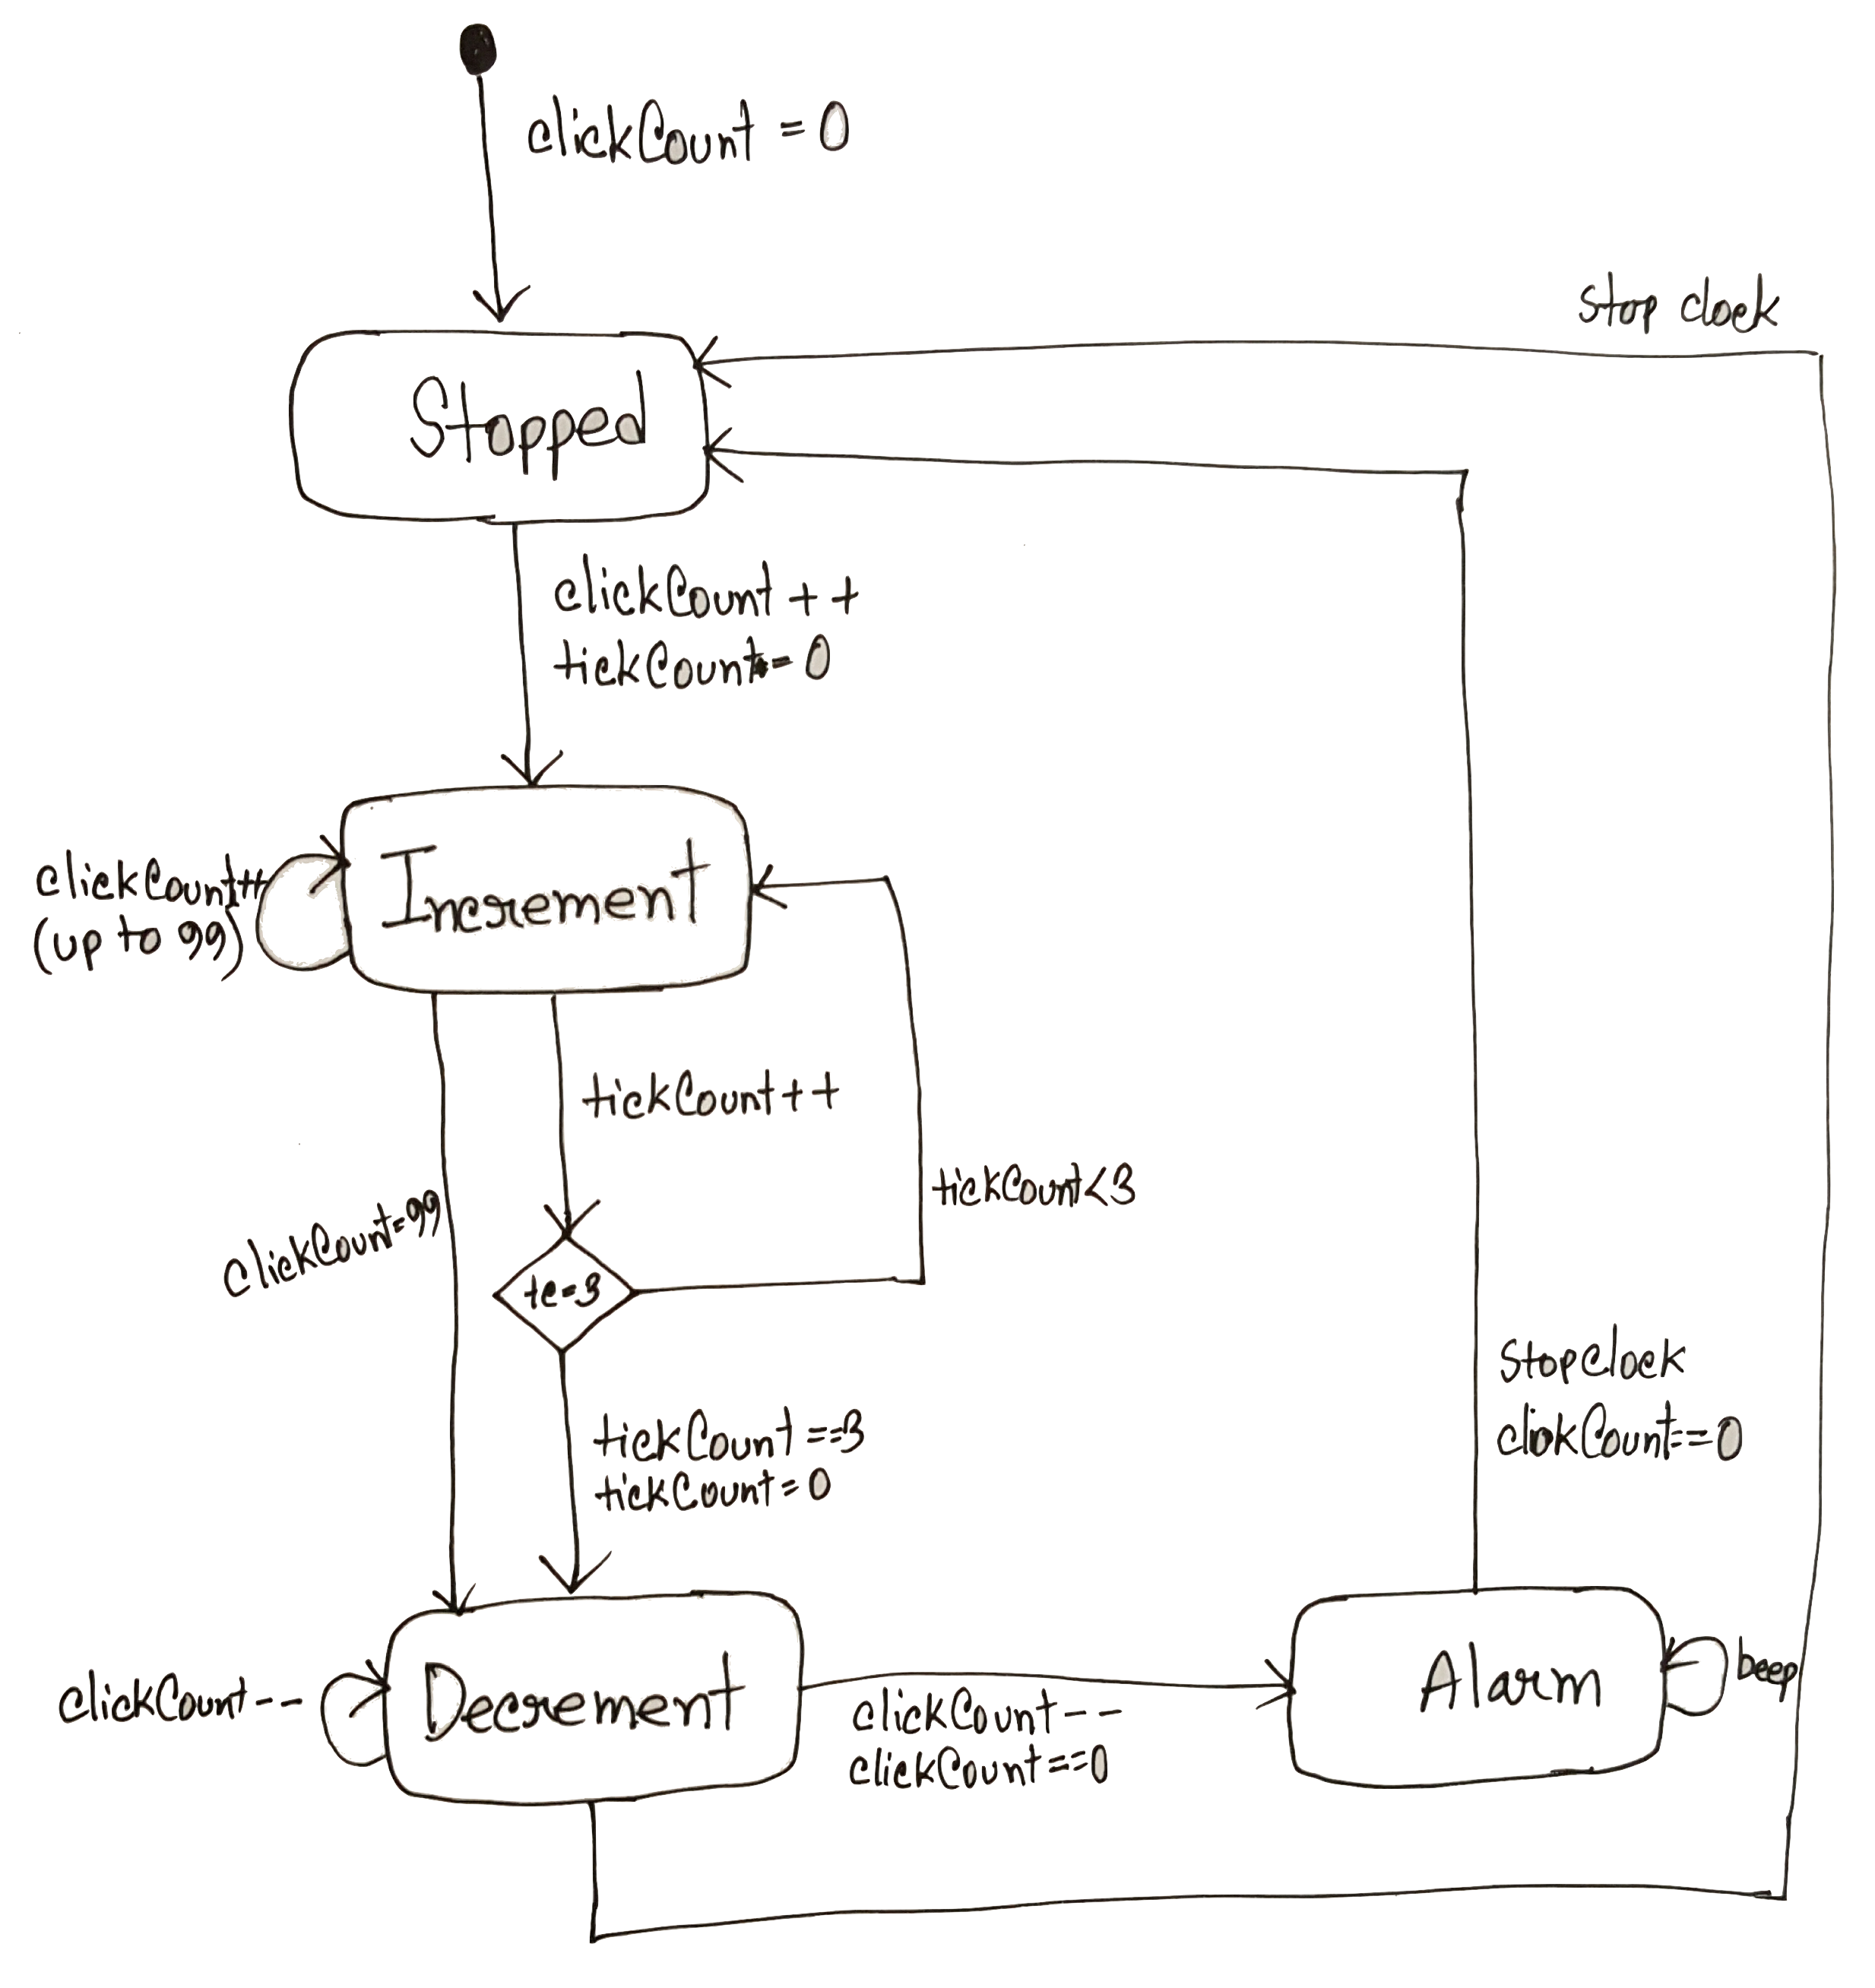 clickCount = 0
stop clock
Stopped
clickCount ++
tickCount = 0
clickCount++
(up to 99)
Increment
tickCount++
tickCount<3
clickCount=99
tc=3
Stopclock
clickCount==0
tickCount ==3
tickCount=0
clickCount--
Decrement
clickCount--
clickCount==0
Alarm
beep